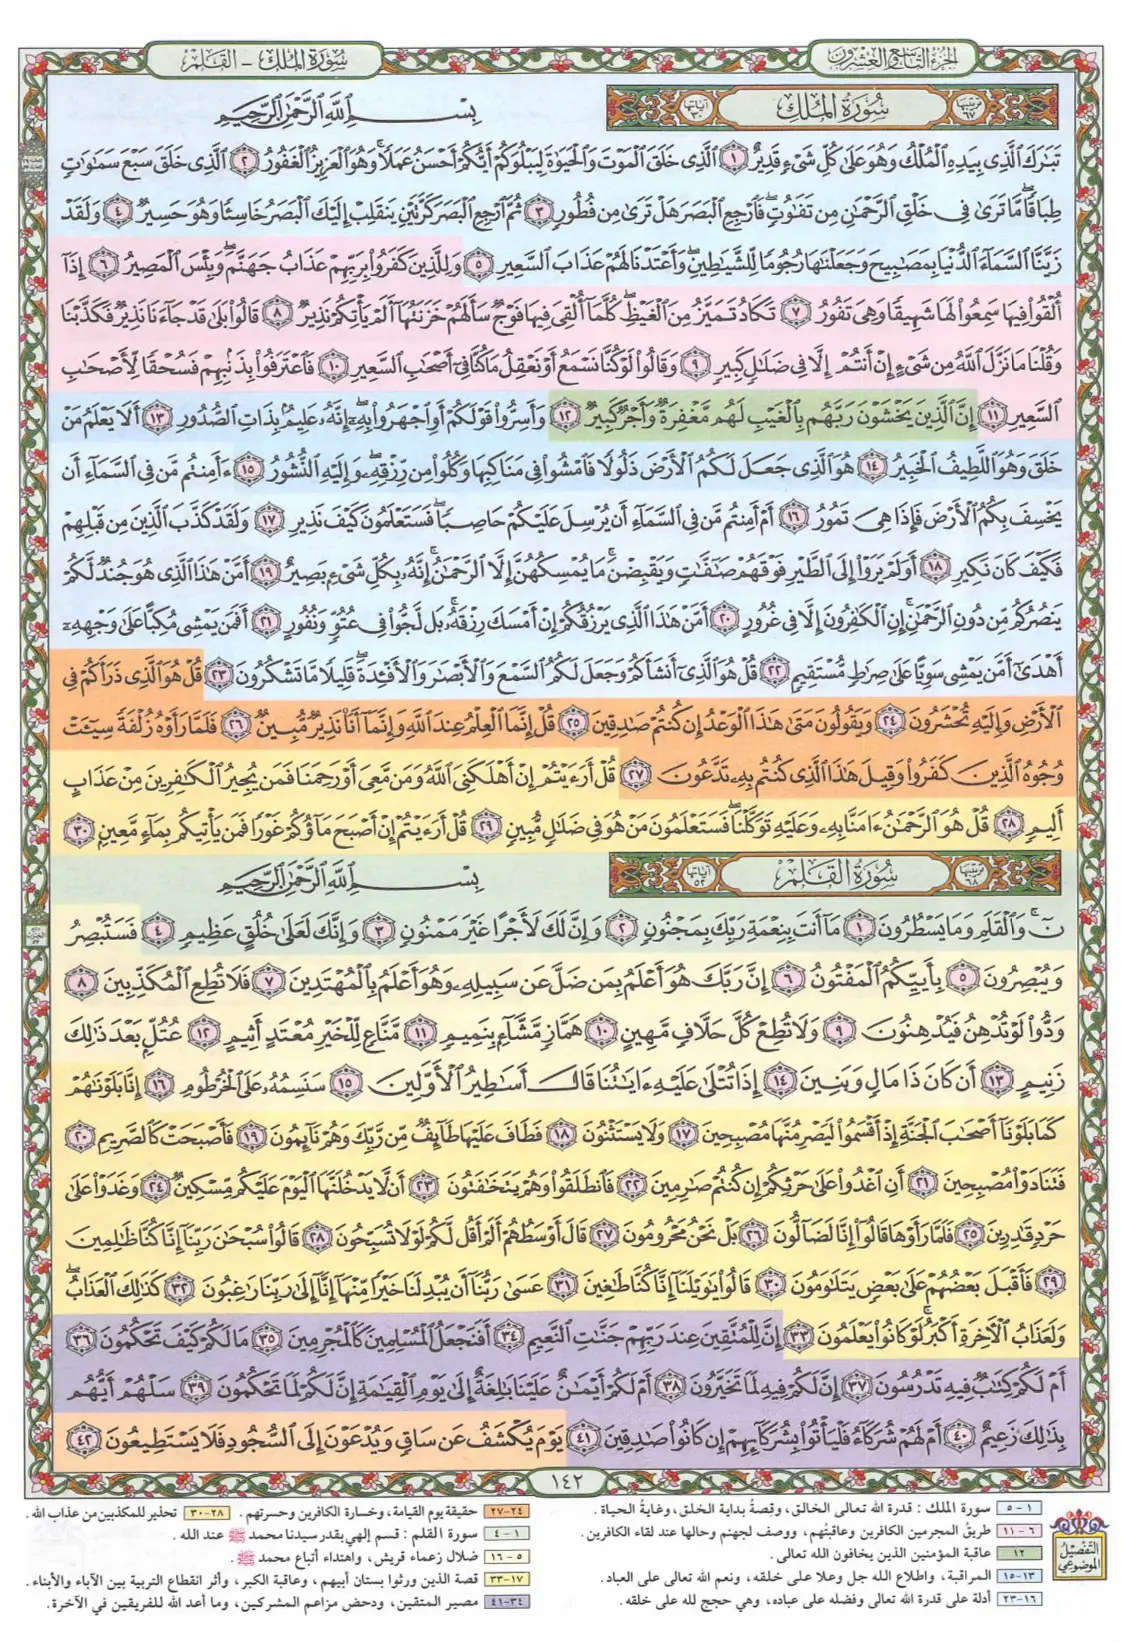 الجزء التاسع والعشرون
سُورَةُ المُلك - القَلَم
ترتيبها ٦٧
سُورَةُ المُلْكِ
آياتها ٣٠
بِسْمِ ٱللَّهِ ٱلرَّحْمَٰنِ ٱلرَّحِيمِ
تَبَٰرَكَ ٱلَّذِى بِيَدِهِ ٱلْمُلْكُ وَهُوَ عَلَىٰ كُلِّ شَىْءٍ قَدِيرٌ ١ ٱلَّذِى خَلَقَ ٱلْمَوْتَ وَٱلْحَيَوٰةَ لِيَبْلُوَكُمْ أَيُّكُمْ أَحْسَنُ عَمَلًا ۚ وَهُوَ ٱلْعَزِيزُ ٱلْغَفُورُ ٢ ٱلَّذِى خَلَقَ سَبْعَ سَمَٰوَٰتٍ
طِبَاقًا ۖ مَّا تَرَىٰ فِى خَلْقِ ٱلرَّحْمَٰنِ مِن تَفَٰوُتٍ ۖ فَٱرْجِعِ ٱلْبَصَرَ هَلْ تَرَىٰ مِن فُطُورٍ ٣ ثُمَّ ٱرْجِعِ ٱلْبَصَرَ كَرَّتَيْنِ يَنقَلِبْ إِلَيْكَ ٱلْبَصَرُ خَاسِئًا وَهُوَ حَسِيرٌ ٤ وَلَقَدْ
زَيَّنَّا ٱلسَّمَآءَ ٱلدُّنْيَا بِمَصَٰبِيحَ وَجَعَلْنَٰهَا رُجُومًا لِّلشَّيَٰطِينِ ۖ وَأَعْتَدْنَا لَهُمْ عَذَابَ ٱلسَّعِيرِ ٥ وَلِلَّذِينَ كَفَرُوا۟ بِرَبِّهِمْ عَذَابُ جَهَنَّمَ ۖ وَبِئْسَ ٱلْمَصِيرُ ٦ إِذَآ
أُلْقُوا۟ فِيهَا سَمِعُوا۟ لَهَا شَهِيقًا وَهِىَ تَفُورُ ٧ تَكَادُ تَمَيَّزُ مِنَ ٱلْغَيْظِ ۖ كُلَّمَآ أُلْقِىَ فِيهَا فَوْجٌ سَأَلَهُمْ خَزَنَتُهَآ أَلَمْ يَأْتِكُمْ نَذِيرٌ ٨ قَالُوا۟ بَلَىٰ قَدْ جَآءَنَا نَذِيرٌ فَكَذَّبْنَا
وَقُلْنَا مَا نَزَّلَ ٱللَّهُ مِن شَىْءٍ إِنْ أَنتُمْ إِلَّا فِى ضَلَٰلٍ كَبِيرٍ ٩ وَقَالُوا۟ لَوْ كُنَّا نَسْمَعُ أَوْ نَعْقِلُ مَا كُنَّا فِىٓ أَصْحَٰبِ ٱلسَّعِيرِ ١٠ فَٱعْتَرَفُوا۟ بِذَنۢبِهِمْ فَسُحْقًا لِّأَصْحَٰبِ
ٱلسَّعِيرِ ١١ إِنَّ ٱلَّذِينَ يَخْشَوْنَ رَبَّهُم بِٱلْغَيْبِ لَهُم مَّغْفِرَةٌ وَأَجْرٌ كَبِيرٌ ١٢ وَأَسِرُّوا۟ قَوْلَكُمْ أَوِ ٱجْهَرُوا۟ بِهِۦٓ ۖ إِنَّهُۥ عَلِيمٌۢ بِذَاتِ ٱلصُّدُورِ ١٣ أَلَا يَعْلَمُ مَنْ
خَلَقَ وَهُوَ ٱللَّطِيفُ ٱلْخَبِيرُ ١٤ هُوَ ٱلَّذِى جَعَلَ لَكُمُ ٱلْأَرْضَ ذَلُولًا فَٱمْشُوا۟ فِى مَنَاكِبِهَا وَكُلُوا۟ مِن رِّزْقِهِۦ ۖ وَإِلَيْهِ ٱلنُّشُورُ ١٥ ءَأَمِنتُم مَّن فِى ٱلسَّمَآءِ أَن
يَخْسِفَ بِكُمُ ٱلْأَرْضَ فَإِذَا هِىَ تَمُورُ ١٦ أَمْ أَمِنتُم مَّن فِى ٱلسَّمَآءِ أَن يُرْسِلَ عَلَيْكُمْ حَاصِبًا ۖ فَسَتَعْلَمُونَ كَيْفَ نَذِيرِ ١٧ وَلَقَدْ كَذَّبَ ٱلَّذِينَ مِن قَبْلِهِمْ
فَكَيْفَ كَانَ نَكِيرِ ١٨ أَوَلَمْ يَرَوْا۟ إِلَى ٱلطَّيْرِ فَوْقَهُمْ صَٰٓفَّٰتٍ وَيَقْبِضْنَ ۚ مَا يُمْسِكُهُنَّ إِلَّا ٱلرَّحْمَٰنُ ۚ إِنَّهُۥ بِكُلِّ شَىْءٍۭ بَصِيرٌ ١٩ أَمَّنْ هَٰذَا ٱلَّذِى هُوَ جُندٌ لَّكُمْ
يَنصُرُكُم مِّن دُونِ ٱلرَّحْمَٰنِ ۚ إِنِ ٱلْكَٰفِرُونَ إِلَّا فِى غُرُورٍ ٢٠ أَمَّنْ هَٰذَا ٱلَّذِى يَرْزُقُكُمْ إِنْ أَمْسَكَ رِزْقَهُۥ ۚ بَل لَّجُّوا۟ فِى عُتُوٍّ وَنُفُورٍ ٢١ أَفَمَن يَمْشِى مُكِبًّا عَلَىٰ وَجْهِهِۦٓ
أَهْدَىٰٓ أَمَّن يَمْشِى سَوِيًّا عَلَىٰ صِرَٰطٍ مُّسْتَقِيمٍ ٢٢ قُلْ هُوَ ٱلَّذِىٓ أَنشَأَكُمْ وَجَعَلَ لَكُمُ ٱلسَّمْعَ وَٱلْأَبْصَٰرَ وَٱلْأَفْـِٔدَةَ ۖ قَلِيلًا مَّا تَشْكُرُونَ ٢٣ قُلْ هُوَ ٱلَّذِى ذَرَأَكُمْ فِى
ٱلْأَرْضِ وَإِلَيْهِ تُحْشَرُونَ ٢٤ وَيَقُولُونَ مَتَىٰ هَٰذَا ٱلْوَعْدُ إِن كُنتُمْ صَٰدِقِينَ ٢٥ قُلْ إِنَّمَا ٱلْعِلْمُ عِندَ ٱللَّهِ وَإِنَّمَآ أَنَا۠ نَذِيرٌ مُّبِينٌ ٢٦ فَلَمَّا رَأَوْهُ زُلْفَةً سِيٓـَٔتْ
وُجُوهُ ٱلَّذِينَ كَفَرُوا۟ وَقِيلَ هَٰذَا ٱلَّذِى كُنتُم بِهِۦ تَدَّعُونَ ٢٧ قُلْ أَرَءَيْتُمْ إِنْ أَهْلَكَنِىَ ٱللَّهُ وَمَن مَّعِىَ أَوْ رَحِمَنَا فَمَن يُجِيرُ ٱلْكَٰفِرِينَ مِنْ عَذَابٍ
أَلِيمٍ ٢٨ قُلْ هُوَ ٱلرَّحْمَٰنُ ءَامَنَّا بِهِۦ وَعَلَيْهِ تَوَكَّلْنَا ۖ فَسَتَعْلَمُونَ مَنْ هُوَ فِى ضَلَٰلٍ مُّبِينٍ ٢٩ قُلْ أَرَءَيْتُمْ إِنْ أَصْبَحَ مَآؤُكُمْ غَوْرًا فَمَن يَأْتِيكُم بِمَآءٍ مَّعِينٍۭ ٣٠
ترتيبها ٦٨
سُورَةُ القَلَمِ
آياتها ٥٢
بِسْمِ ٱللَّهِ ٱلرَّحْمَٰنِ ٱلرَّحِيمِ
نٓ ۚ وَٱلْقَلَمِ وَمَا يَسْطُرُونَ ١ مَآ أَنتَ بِنِعْمَةِ رَبِّكَ بِمَجْنُونٍ ٢ وَإِنَّ لَكَ لَأَجْرًا غَيْرَ مَمْنُونٍ ٣ وَإِنَّكَ لَعَلَىٰ خُلُقٍ عَظِيمٍ ٤ فَسَتُبْصِرُ
وَيُبْصِرُونَ ٥ بِأَييِّكُمُ ٱلْمَفْتُونُ ٦ إِنَّ رَبَّكَ هُوَ أَعْلَمُ بِمَن ضَلَّ عَن سَبِيلِهِۦ وَهُوَ أَعْلَمُ بِٱلْمُهْتَدِينَ ٧ فَلَا تُطِعِ ٱلْمُكَذِّبِينَ ٨
وَدُّوا۟ لَوْ تُدْهِنُ فَيُدْهِنُونَ ٩ وَلَا تُطِعْ كُلَّ حَلَّافٍ مَّهِينٍ ١٠ هَمَّازٍ مَّشَّآءٍۭ بِنَمِيمٍ ١١ مَّنَّاعٍ لِّلْخَيْرِ مُعْتَدٍ أَثِيمٍ ١٢ عُتُلٍّۭ بَعْدَ ذَٰلِكَ
زَنِيمٍ ١٣ أَن كَانَ ذَا مَالٍ وَبَنِينَ ١٤ إِذَا تُتْلَىٰ عَلَيْهِ ءَايَٰتُنَا قَالَ أَسَٰطِيرُ ٱلْأَوَّلِينَ ١٥ سَنَسِمُهُۥ عَلَى ٱلْخُرْطُومِ ١٦ إِنَّا بَلَوْنَٰهُمْ
كَمَا بَلَوْنَآ أَصْحَٰبَ ٱلْجَنَّةِ إِذْ أَقْسَمُوا۟ لَيَصْرِمُنَّهَا مُصْبِحِينَ ١٧ وَلَا يَسْتَثْنُونَ ١٨ فَطَافَ عَلَيْهَا طَآئِفٌ مِّن رَّبِّكَ وَهُمْ نَآئِمُونَ ١٩ فَأَصْبَحَتْ كَٱلصَّرِيمِ ٢٠
فَتَنَادَوْا۟ مُصْبِحِينَ ٢١ أَنِ ٱغْدُوا۟ عَلَىٰ حَرْثِكُمْ إِن كُنتُمْ صَٰرِمِينَ ٢٢ فَٱنطَلَقُوا۟ وَهُمْ يَتَخَٰفَتُونَ ٢٣ أَن لَّا يَدْخُلَنَّهَا ٱلْيَوْمَ عَلَيْكُم مِّسْكِينٌ ٢٤ وَغَدَوْا۟ عَلَىٰ
حَرْدٍ قَٰدِرِينَ ٢٥ فَلَمَّا رَأَوْهَا قَالُوٓا۟ إِنَّا لَضَآلُّونَ ٢٦ بَلْ نَحْنُ مَحْرُومُونَ ٢٧ قَالَ أَوْسَطُهُمْ أَلَمْ أَقُل لَّكُمْ لَوْلَا تُسَبِّحُونَ ٢٨ قَالُوا۟ سُبْحَٰنَ رَبِّنَآ إِنَّا كُنَّا ظَٰلِمِينَ
٢٩ فَأَقْبَلَ بَعْضُهُمْ عَلَىٰ بَعْضٍ يَتَلَٰوَمُونَ ٣٠ قَالُوا۟ يَٰوَيْلَنَآ إِنَّا كُنَّا طَٰغِينَ ٣١ عَسَىٰ رَبُّنَآ أَن يُبْدِلَنَا خَيْرًا مِّنْهَآ إِنَّآ إِلَىٰ رَبِّنَا رَٰغِبُونَ ٣٢ كَذَٰلِكَ ٱلْعَذَابُ ۖ
وَلَعَذَابُ ٱلْءَاخِرَةِ أَكْبَرُ ۚ لَوْ كَانُوا۟ يَعْلَمُونَ ٣٣ إِنَّ لِلْمُتَّقِينَ عِندَ رَبِّهِمْ جَنَّٰتِ ٱلنَّعِيمِ ٣٤ أَفَنَجْعَلُ ٱلْمُسْلِمِينَ كَٱلْمُجْرِمِينَ ٣٥ مَا لَكُمْ كَيْفَ تَحْكُمُونَ ٣٦
أَمْ لَكُمْ كِتَٰبٌ فِيهِ تَدْرُسُونَ ٣٧ إِنَّ لَكُمْ فِيهِ لَمَا تَخَيَّرُونَ ٣٨ أَمْ لَكُمْ أَيْمَٰنٌ عَلَيْنَا بَٰلِغَةٌ إِلَىٰ يَوْمِ ٱلْقِيَٰمَةِ ۙ إِنَّ لَكُمْ لَمَا تَحْكُمُونَ ٣٩ سَلْهُمْ أَيُّهُم
بِذَٰلِكَ زَعِيمٌ ٤٠ أَمْ لَهُمْ شُرَكَآءُ فَلْيَأْتُوا۟ بِشُرَكَآئِهِمْ إِن كَانُوا۟ صَٰدِقِينَ ٤١ يَوْمَ يُكْشَفُ عَن سَاقٍ وَيُدْعَوْنَ إِلَى ٱلسُّجُودِ فَلَا يَسْتَطِيعُونَ ٤٢
١٤٢
التفصيل الموضوعي
١-٥ سورة الملك : قدرة الله تعالى الخالق، وقصةُ بداية الخلق، وغايةُ الحياة.
٦-١١ طريقُ المجرمين الكافرين وعاقبتُهم، ووصف لجهنم وحالها عند لقاء الكافرين.
١٢ عاقبة المؤمنين الذين يخافون الله تعالى.
١٣-١٥ المراقبة، واطلاع الله جل وعلا على خلقه، ونعم الله تعالى على العباد.
١٦-٢٣ أدلة على قدرة الله تعالى وفضله على عباده، وهي حجج لله على خلقه.
٢٤-٢٧ حقيقة يوم القيامة، وخسارة الكافرين وحسرتهم.
٢٨-٣٠ تحذير للمكذبين من عذاب الله.
١-٤ سورة القلم : قسم إلهي بقدر سيدنا محمد ﷺ عند الله.
٥-١٦ ضلال زعماء قريش، واهتداء أتباع محمد ﷺ.
١٧-٣٣ قصة الذين ورثوا بستان أبيهم، وعاقبة الكبر، وأثر انقطاع التربية بين الآباء والأبناء.
٣٤-٤١ مصير المتقين، ودحض مزاعم المشركين، وما أعد الله للفريقين في الآخرة.